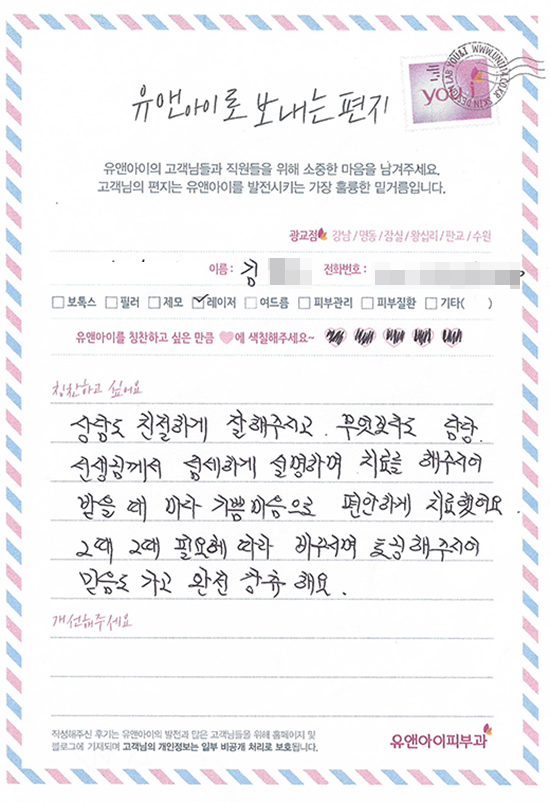 YOU&I WWW.UNI114.CO.KR SKIN DESIGN LAB
you&i
유앤아이로 보내는 편지
유앤아이의 고객님들과 직원들을 위해 소중한 마음을 남겨주세요.
고객님의 편지는 유앤아이를 발전시키는 가장 훌륭한 밑거름입니다.
광교점 강남/명동/잠실/왕십리/판교/수원
이름 : 김 전화번호 :
보톡스 필러 제모 레이저 여드름 피부관리 피부질환 기타( )
유앤아이를 칭찬하고 싶은 만큼 에 색칠해주세요~
칭찬하고 싶어요
상담도 친절하게 잘해주시고. 무엇보다도 담당.
선생님께서 섬세하게 설명하며 치료를 해주시어
받을 때 마다 기쁨마음으로 편안하게 치료했어요
그때 그때 필요에 따라 바꾸시며 토닝해주시어
믿음도 가고 완전 강추 해요.
개선해주세요
작성해주신 후기는 유앤아이의 발전과 많은 고객님들을 위해 홈페이지 및
블로그에 기재되며 고객님의 개인정보는 일부 비공개 처리로 보호됩니다.
유앤아이피부과